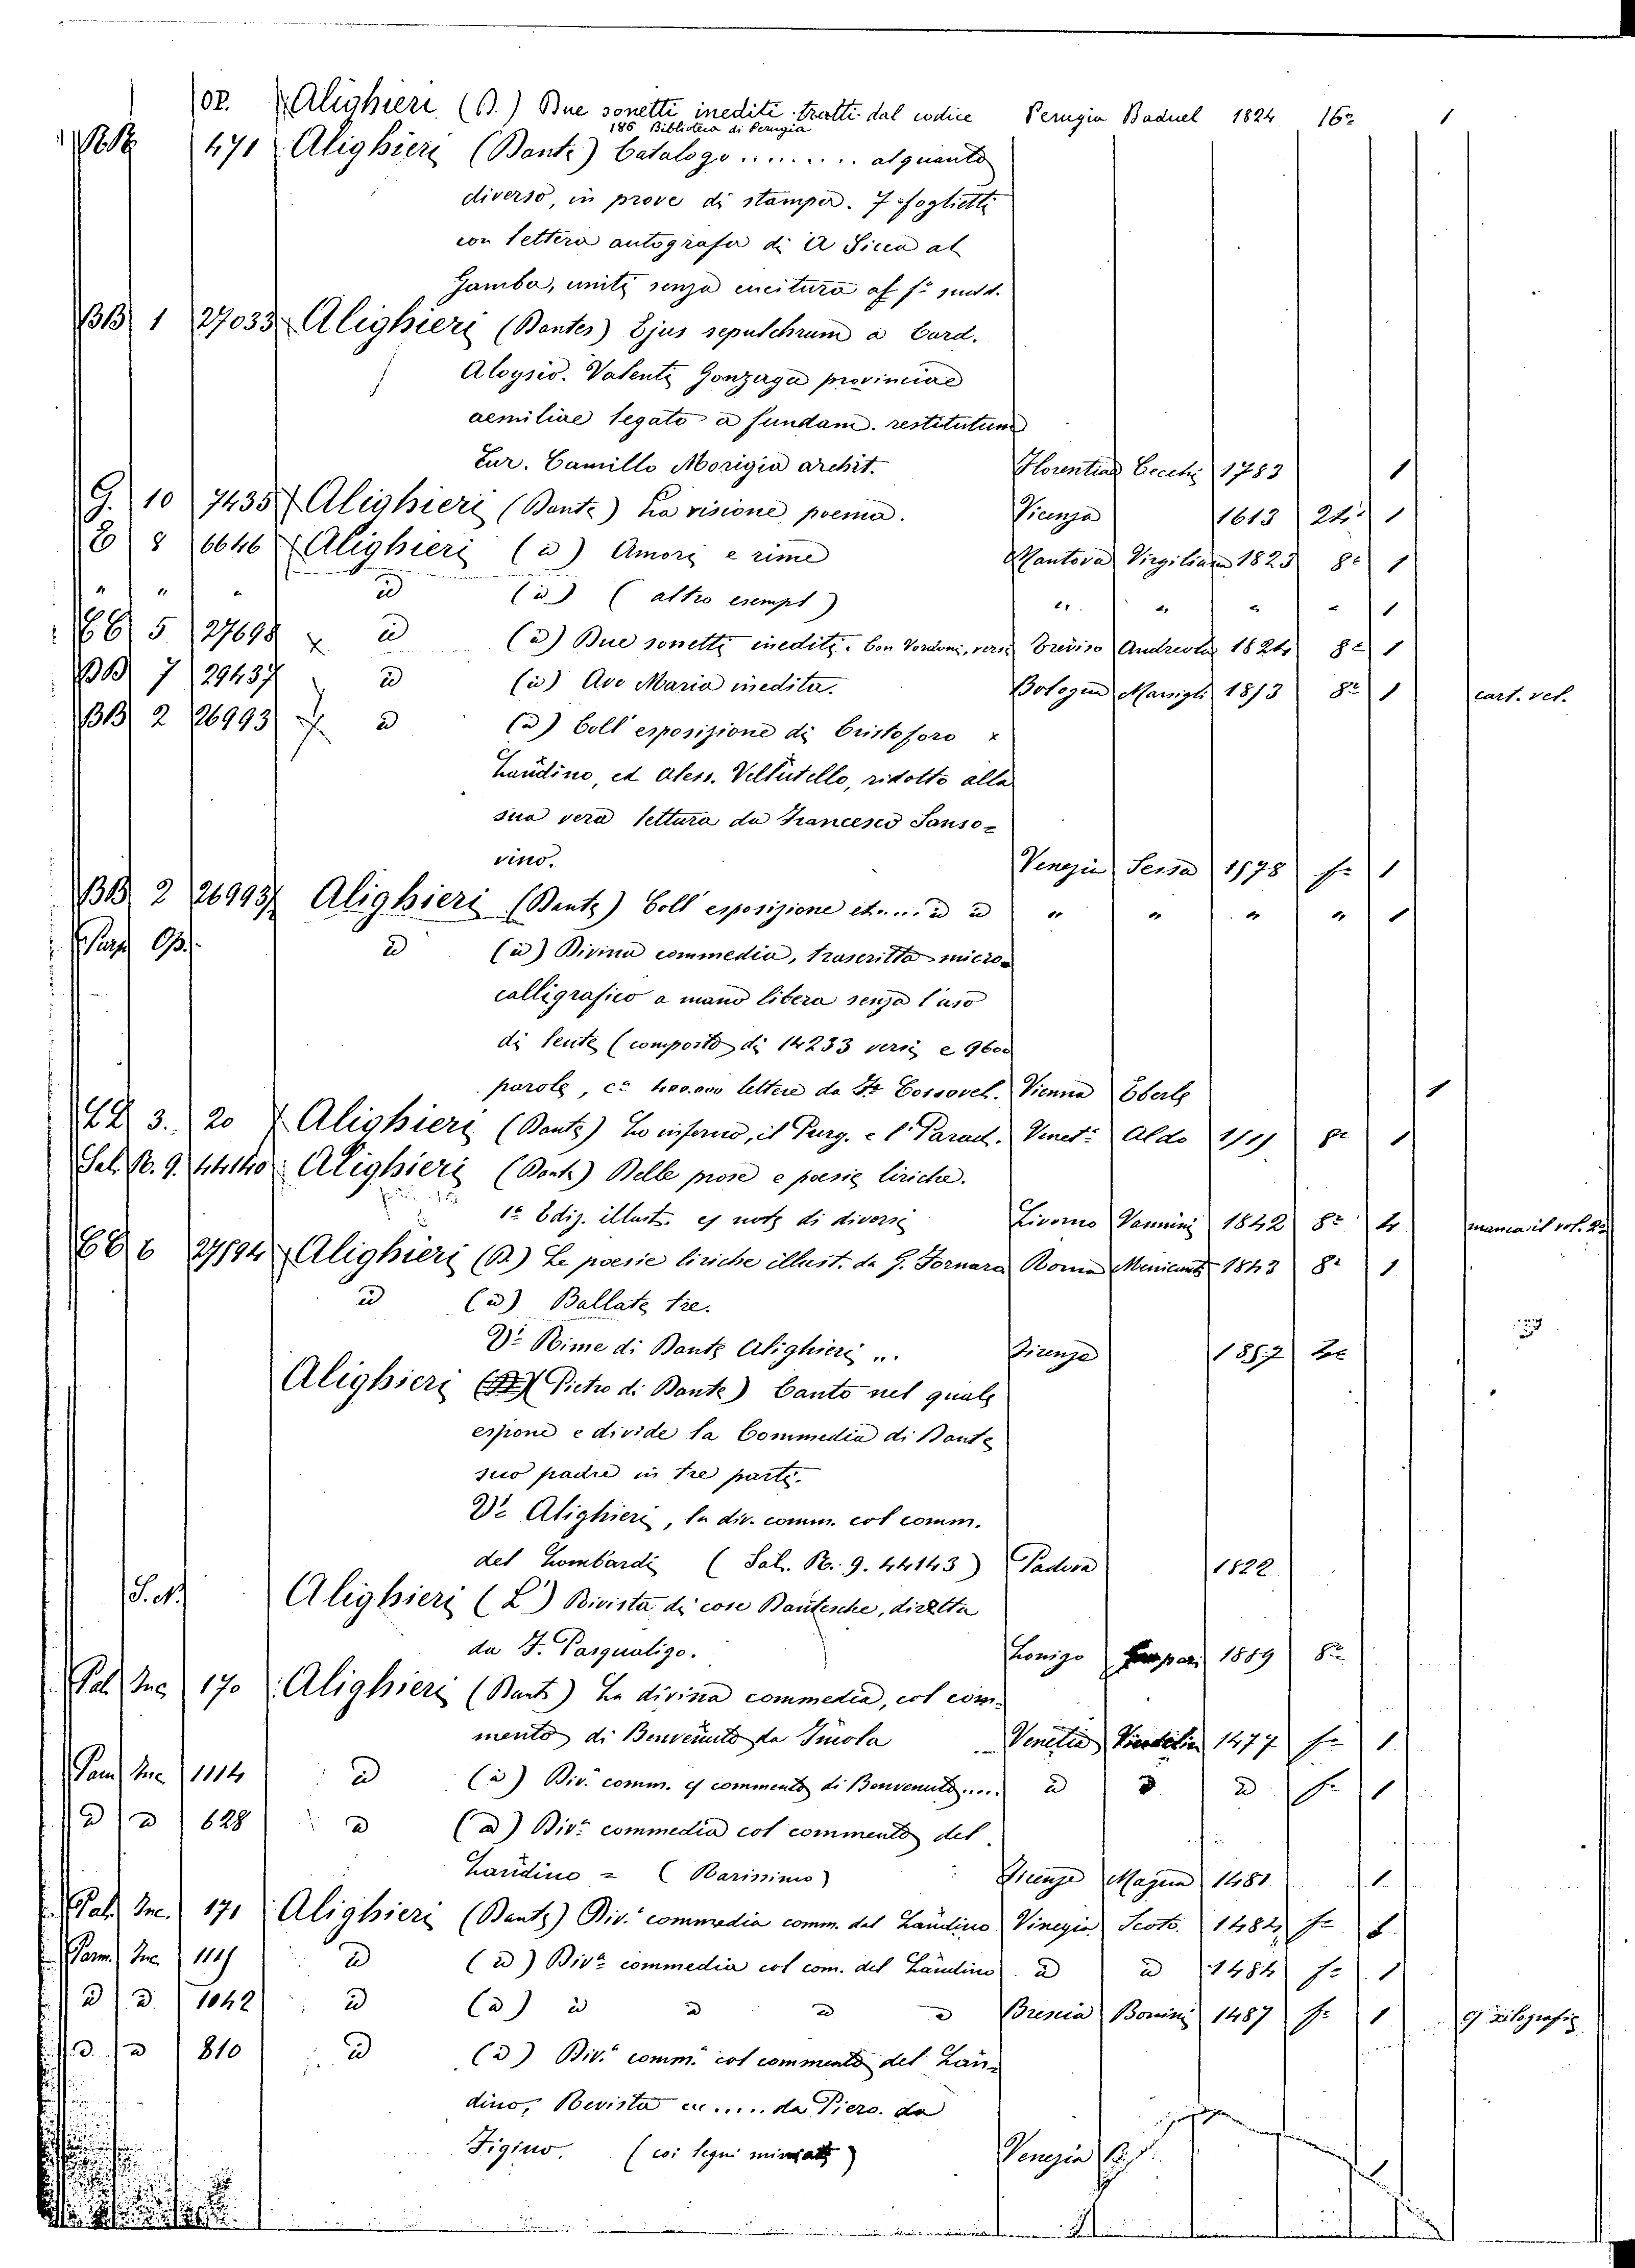 op. Alighieri (D.) Due sonetti inediti tratti dal codice Perugia Baduel 1824 16º 1
186 Biblioteca di Perugia
471 Alighieri (Dante) Catalogo ........ alquanto
diverso, in prove di stampa. 7 foglietti
con lettera autografa di A Sicca al
Gamba, uniti senza cucitura
BB 1 27033 Alighieri (Dantes) Ejus sepulchrum a Card.
Aloysio. Valenti Gonzaga provinciae
aemiliae legato a fundam. restitutum
Cur. Camillo Morigia archit. Florentiae Cecchi 1783 1
G. 10 7435 Alighieri (Dante) La visione poema. Vicenza 1613 24º 1
8 6646 Alighieri (id) Amori e rime Mantova Virgiliana 1823 8º 1
" " " id (id) (altro esempl) " " " " 1
5 27698 x id (id) Due sonetti inediti. Treviso Andreola 1824 8º 1
BB 7 29437 id (id) Ave Maria inedita. Bologna Marsigli 1813 8º 1 cart. vel.
BB 2 26993 id (id) Coll' esposizione di Cristoforo x
Landino, et Aless. Vellutello, ridotto alla
sua vera lettura da Francesco Sanso-
vino. Venezia Sessa 1578 fº 1
BB 2 26993 Alighieri (Dante) Coll' esposizione et..... id id " " " " 1
Op. id (id) Divina commedia, trascritta micro-
calligrafico a mano libera senza l'uso
di lente (composto di 14233 versi e 9600
parole, cª 400.000 lettere da Fr Cossovel. Vienna Eberle 1
3. 20 Alighieri (Dante) Lo inferno, il Purg. e l' Parad. Venetª Aldo 1515 8º 1
Sal. B. 9. 44140 Alighieri (Dante) Delle prose e poesie liriche.
1ª Ediz. illust. cº note di diversi Livorno Vannini 1842 8º 4 manca il vol. 2º
6 27594 Alighieri (D.) Le poesie liriche illust. da G. Fornaro Roma Menicanti 1843 8º 1
id (id) Ballate tre.
Vº Rime di Dante Alighieri ... Firenze 1852
Alighieri (Pietro di Dante) Canto nel quale
espone e divide la Commedia di Dante
suo padre in tre parti.
Vº Alighieri, la div. comm. col comm.
del Lombardi (Sal. B. 9. 44143) Padova 1822
S. N. Alighieri (L') Rivista di cose Dantesche, diretta
da F. Pasqualigo. Lonigo Gaspari 1889 8º
Pal. Inc 170 Alighieri (Dante) La divina commedia, col com-
mento di Benvenuto da Imola Venetia Vindelin 1477 fº 1
Pam Inc 1114 id (id) Divª comm. cº commento di Benvenuto..... id id id fº 1
id id 628 id (id) Divª commedia col commento del
Landino = (Rarissimo) Firenze Magna 1481 1
Pal. Inc. 171 Alighieri (Dante) Divª commedia comm. del Landino Vinegia Scoto. 1484 fº 1
Pam. Inc. 1115 id (id) Divª commedia col com. del Landino id id 1484 fº 1
id id 1042 id (id) id id id id Brescia Bonini 1487 fº 1 cº Xilografie
id id 810 id (id) Divª commª col commento del Lan-
dino, Revista ...... da Piero. da
Figino. (coi segni miniati) Venezia